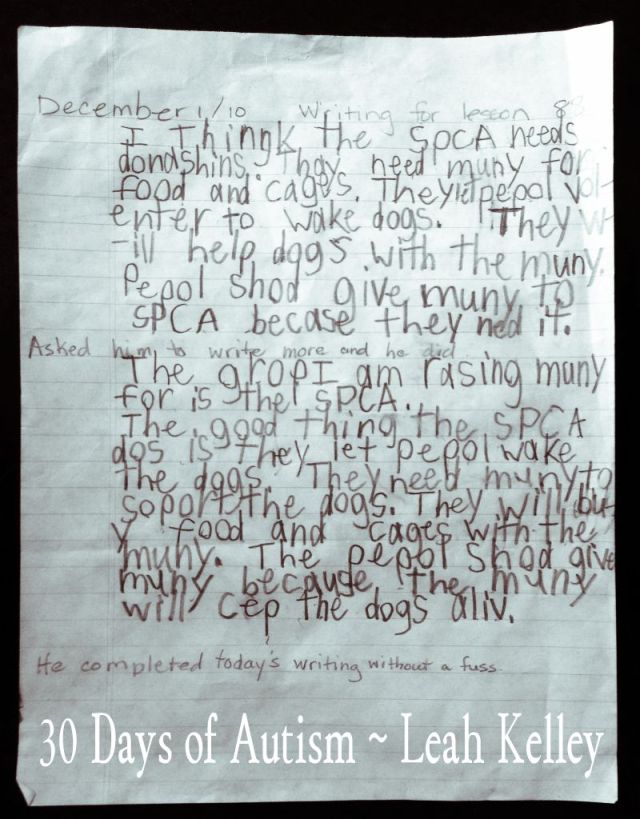 December 1/10 Writing for lesson 88
I Thingk the SpCA needs
donashins. Thay need muny for
food and cages. They let pepol vol-
enter to wake dogs. They w-
-ill help dogs with the muny.
Pepol shod give muny to
SPCA becase they ned it.
Asked him to write more and he did.
The grop I am rasing muny
for is the SPCA.
The good thing the SPCA
dos is they let pepol wake
the dogs. They need muny to
soport the dogs. They will bu-
y food and cages with the
muny. The pepol shod give
muny because the muny
will cep the dogs aliv.
He completed today's writing without a fuss.
30 Days of Autism ~ Leah Kelley